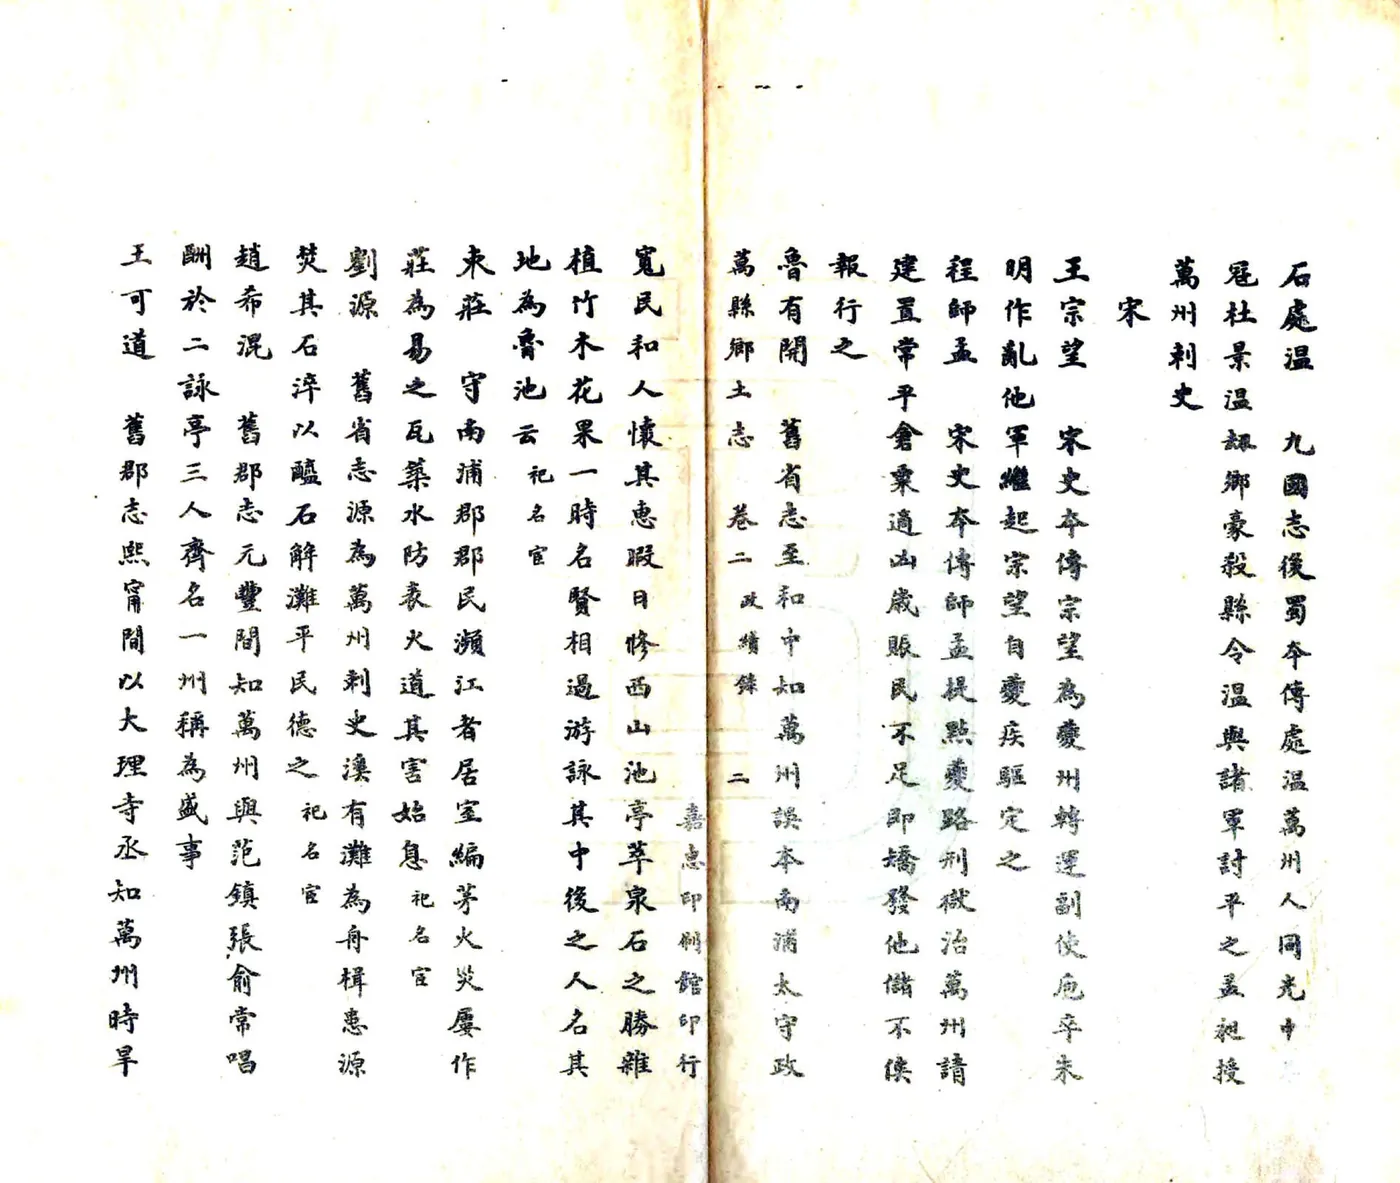 石處温　九國志後蜀本傳處温萬州人同光中
冦杜景温刼鄉豪殺縣令温與諸軍討平之孟昶授
萬州刺史
宋
王宗望　宋史本傳宗望為夔州轉運副使危卒朱
明作亂他軍繼起宗望自夔疾驅定之
程師孟　宋史本傳師孟提點夔路刑獄治萬州請
建置常平倉粟適凶歲賑民不足即矯發他儲不俟
報行之
魯有開　舊省志至和中知萬州誤本南浦太守政
萬縣鄉土志　卷二　政績錄　二
嘉惠印刷館印行
寬民和人懷其惠暇日修西山池亭萃泉石之勝雜
植竹木花果一時名賢相過游詠其中後之人名其
地為魯池云　祀名宦
束莊　守南浦郡郡民瀕江者居室編茅火災屢作
莊為易之瓦築水防表火道其害始息　祀名宦
劉源　舊省志源為萬州刺史溪有灘為舟楫患源
焚其石淬以醯石解灘平民德之　祀名宦
趙希混　舊郡志元豐間知萬州與范鎮張俞常唱
酬於二詠亭三人齊名一州稱為盛事
王可道　舊郡志熙甯間以大理寺丞知萬州時旱